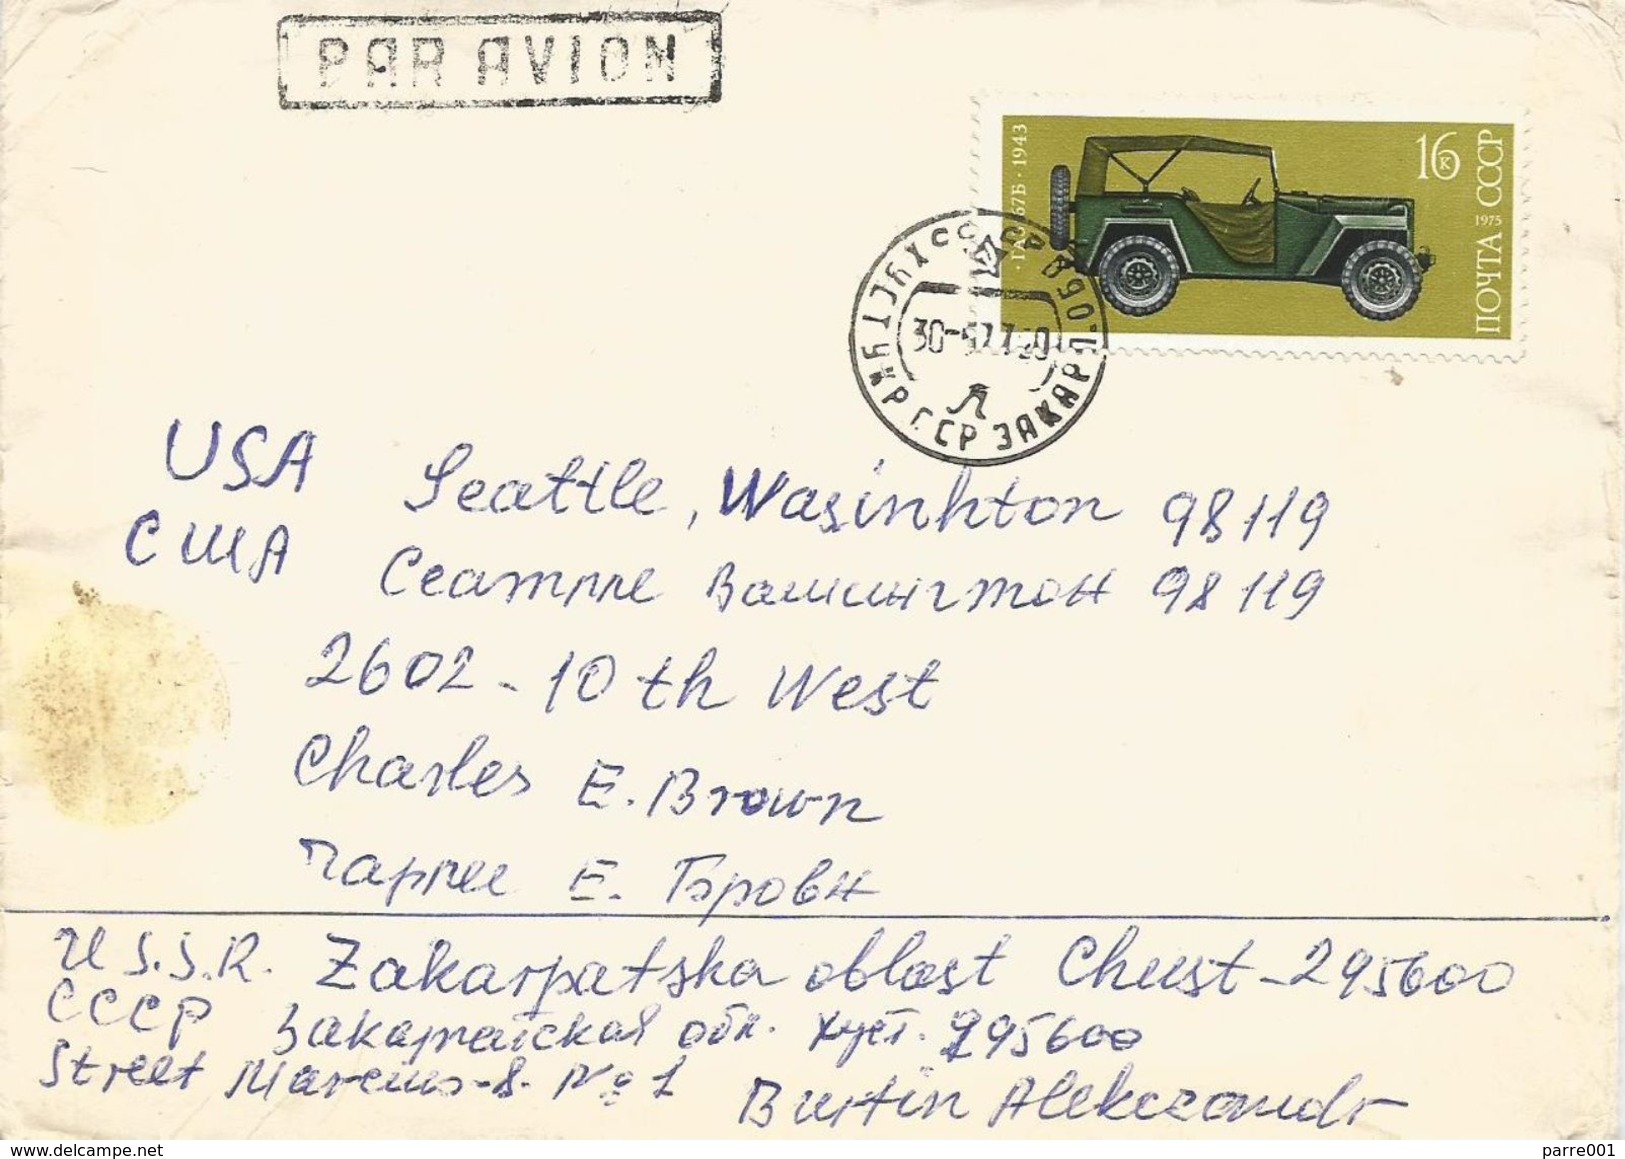 PAR AVION
ГАЗ-67Б · 1943
16 к
ПОЧТА СССР
1975
ХУСТ УКР. ССР ЗАКАРП. ОБЛ.
USA Seattle, Wasinhton 98119
США Сеаттле Вашингтон 98119
2602 - 10 th West
Charles E. Brown
Чарлес Е. Бровн
U.S.S.R. Zakarpatska oblast Chust - 295600
СССР Закарпатская обл. Хуст. 295600
Street No 1
Burtin Alekczandr
delcampe.net
parre001